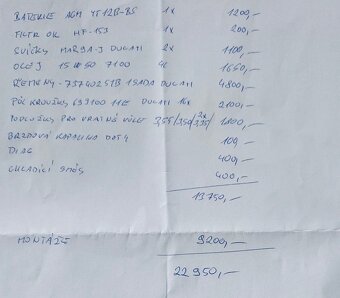 BATERIE AGM YT12B-BS 1x 1200,-
FILTR OK. HF-153 1x 200,-
SVÍČKY MAR9A-J DUCATI 2x 1100,-
OLEJ 15W50 7100 4L 1650,-
ŘEMENY - 73740251B 1SADA DUCATI 4800,-
PŮL KROUŽKY DUCATI 2100,-
PODLOŽKY PRO VRATNÁ VŮLE 2x 1100,-
BRZDOVÁ KAPALINA DOT4 100,-
DIAG 400,-
CHLADÍCÍ SMĚS 400,-
13750,-
MONTÁŽE 9200,-
22950,-